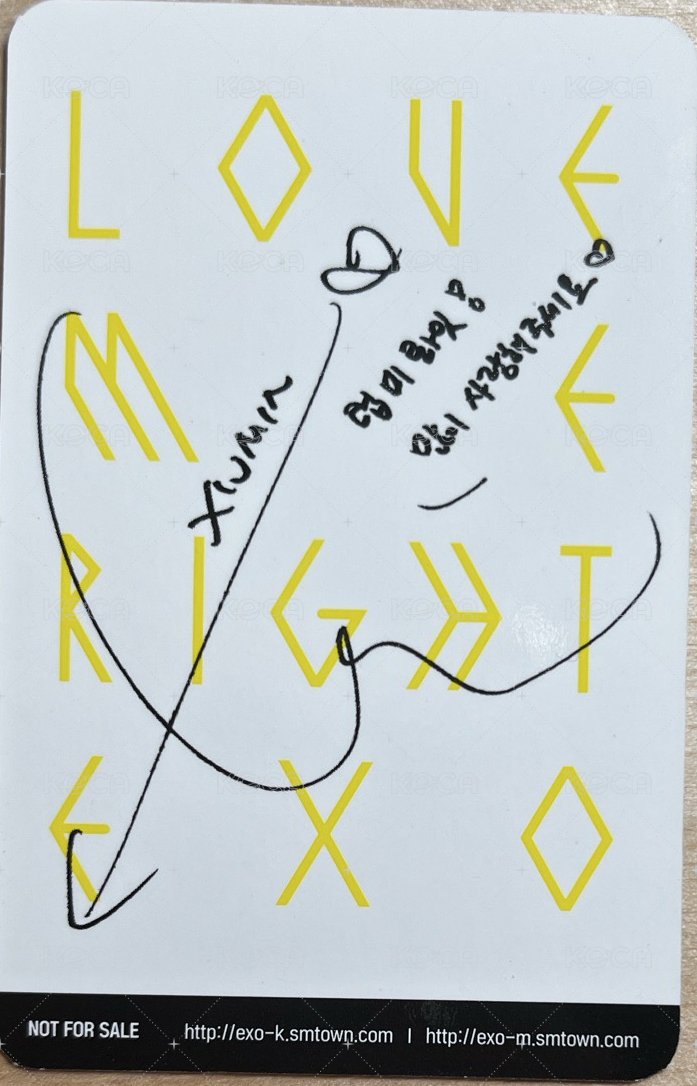 LOVE
ME
RIGHT
EXO
XIUMIN
럽미라잇?
많이 사랑해주세요♡
NOT FOR SALE
http://exo-k.smtown.com | http://exo-m.smtown.com
KOCA